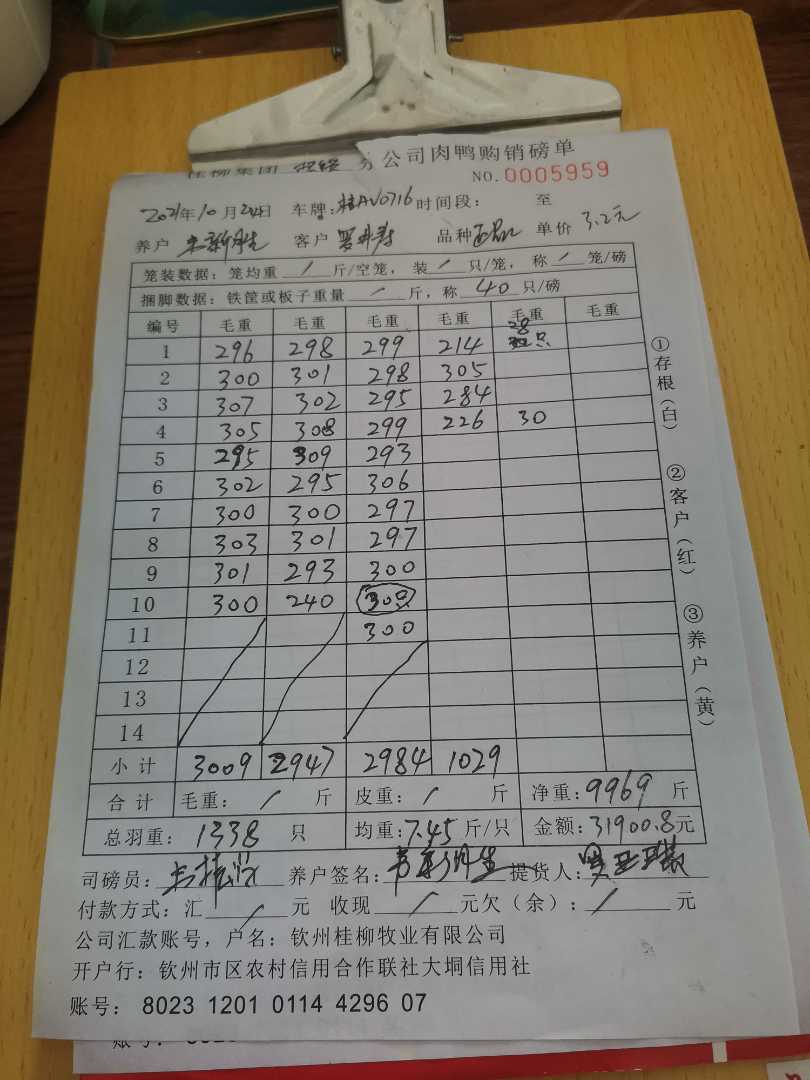 公司肉鸭购销磅单
NO.0005959
2021年10月24日 车牌:桂AV0716 时间段: 至
养户 客户 品种 正品 单价 3.2元
笼装数据:笼均重 / 斤/空笼,装 / 只/笼,称 / 笼/磅
捆脚数据:铁筐或板子重量 / 斤,称 40 只/磅
编号 毛重 毛重 毛重 毛重 毛重 毛重
1 296 298 299 214 28只
2 300 301 298 305
3 307 302 295 284
4 305 308 299 226 30
5 295 309 293
6 302 295 306
7 300 300 297
8 303 301 297
9 301 293 300
10 300 240 300
11 300
12
13
14
小计 3009 2947 2984 1029
合计 毛重: / 斤 皮重: / 斤 净重:9969 斤
总羽重:1338 只 均重:7.45斤/只 金额:31900.8元
司磅员: 养户签名: 提货人:
付款方式:汇 / 元 收现 / 元欠(余): / 元
公司汇款账号,户名:钦州桂柳牧业有限公司
开户行:钦州市区农村信用合作联社大垌信用社
账号: 8023 1201 0114 4296 07
①存根(白)
②客户(红)
③养户(黄)